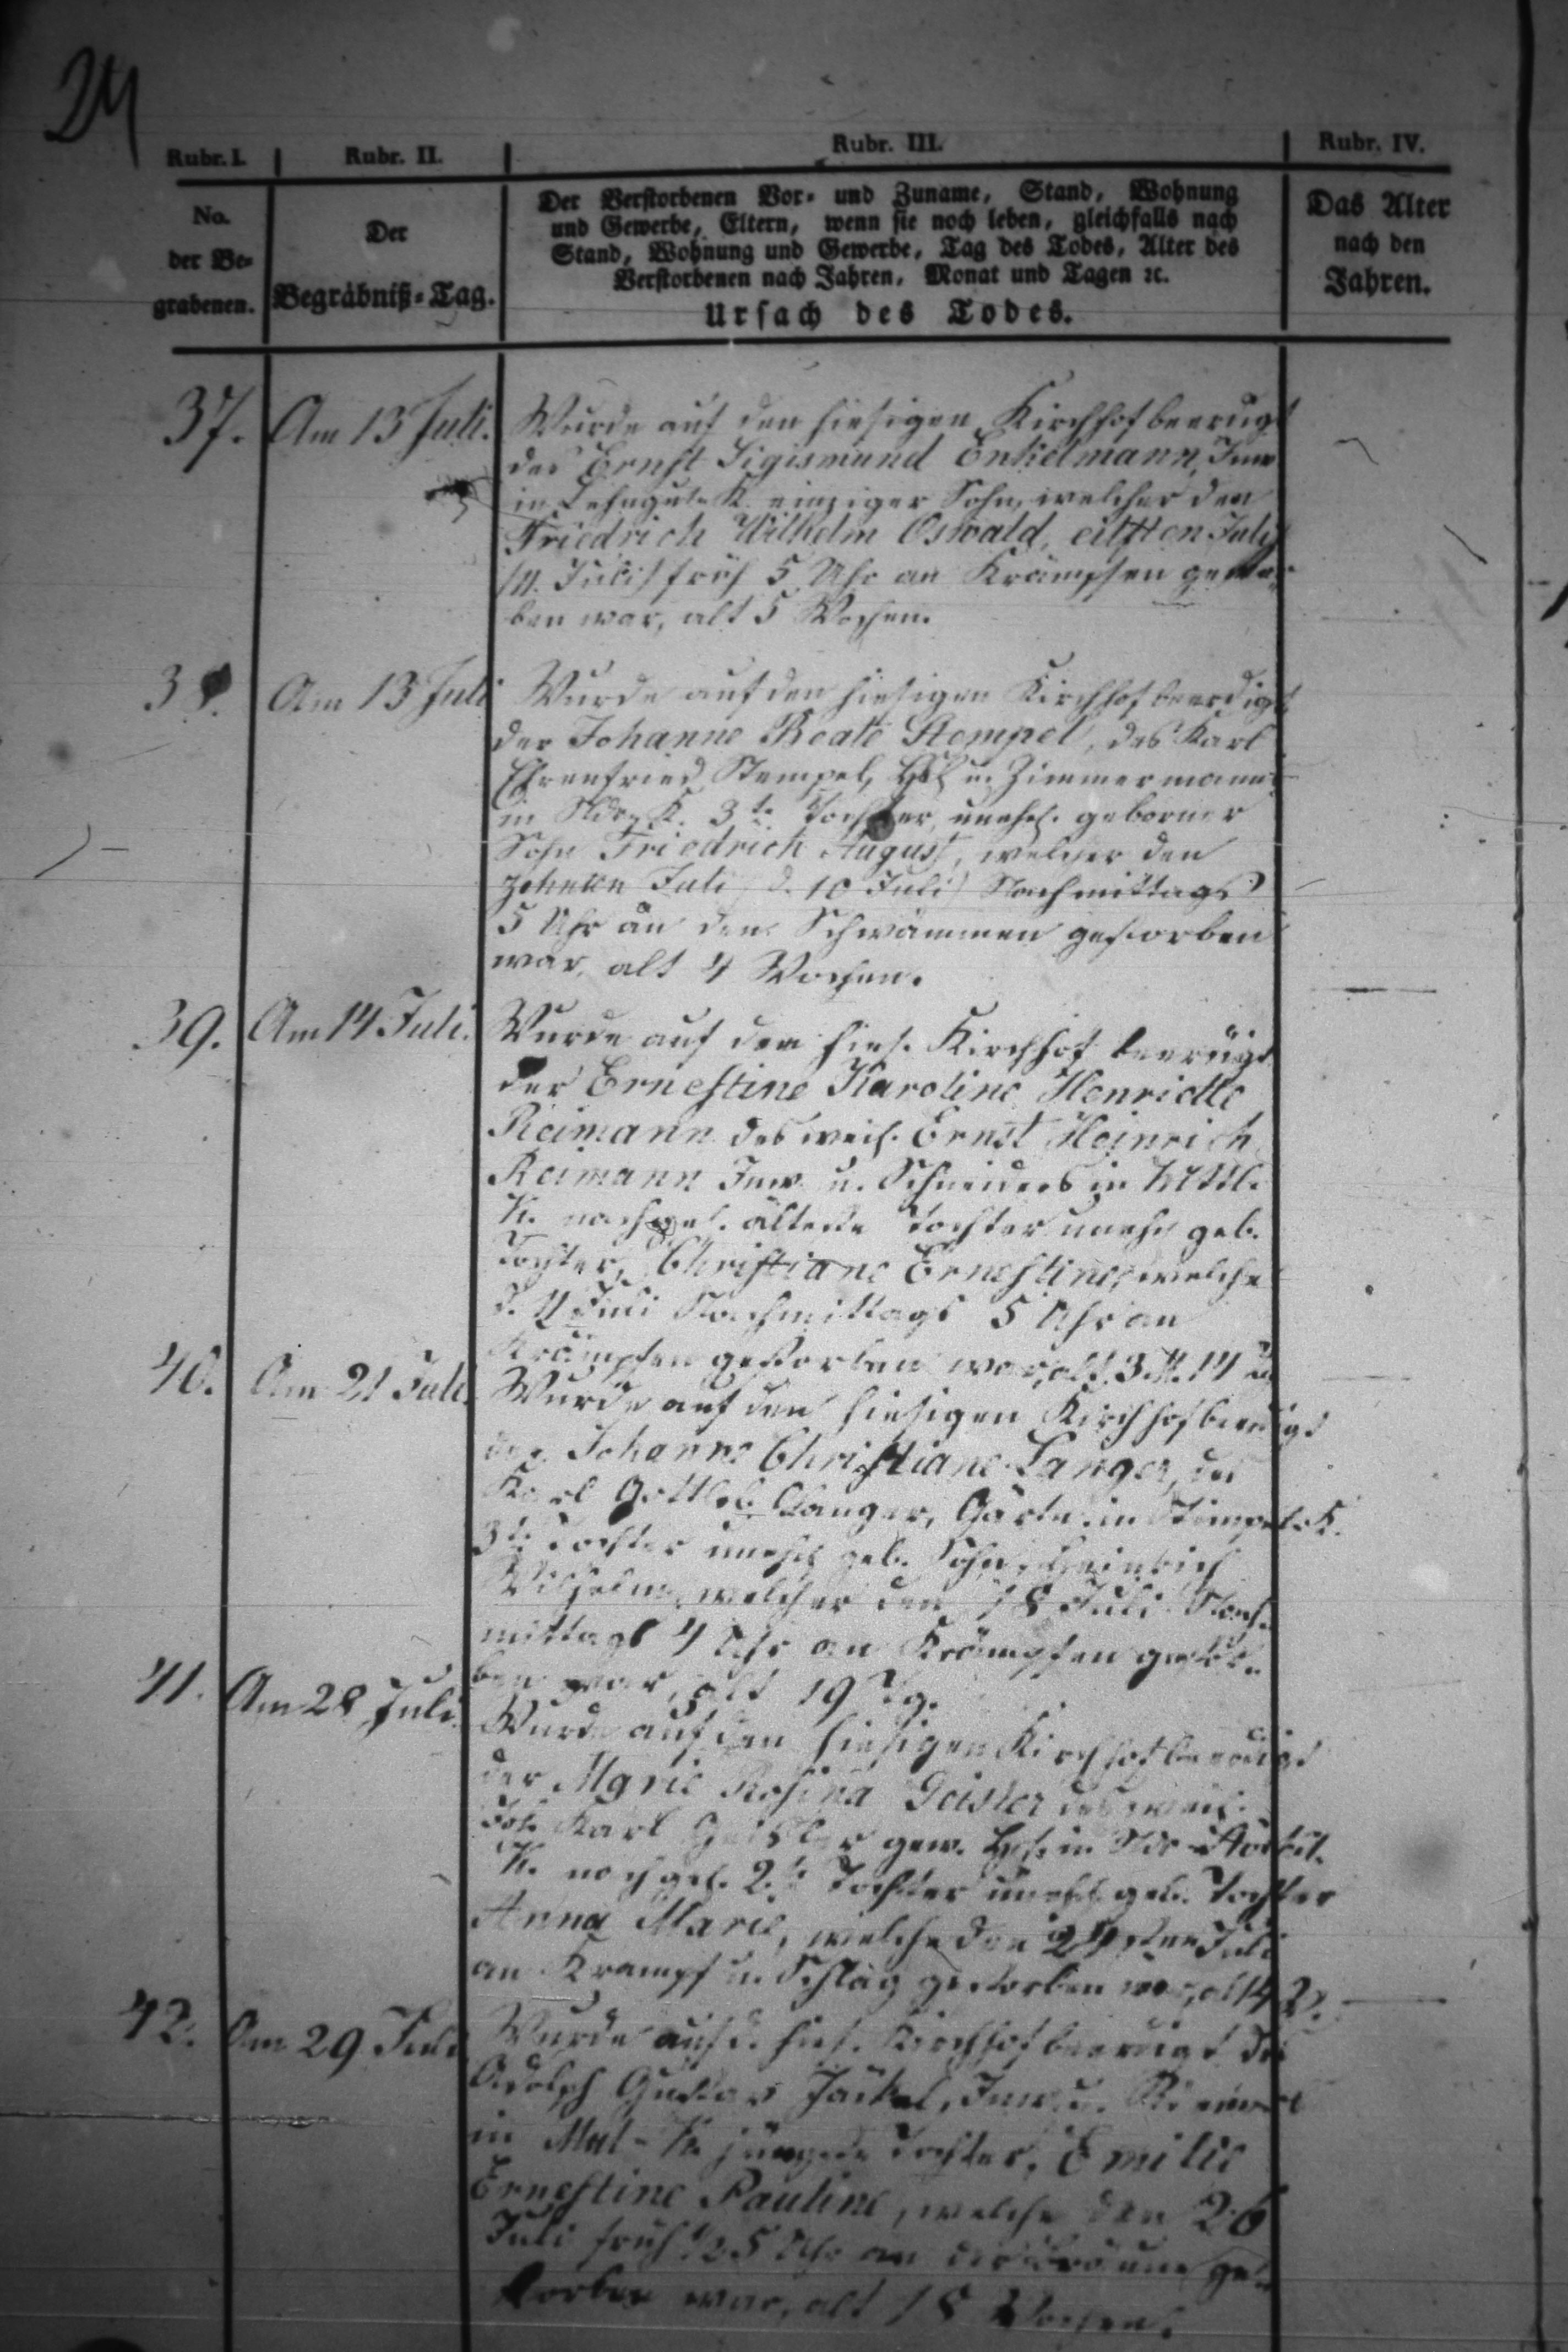 24
Rubr. I. Rubr. II. Rubr. III. Rubr. IV.
No. der Be-grabenen.
Der Begräbniß-Tag.
Der Verstorbenen Vor- und Zuname, Stand, Wohnung
und Gewerbe, Eltern, wenn sie noch leben, gleichfalls nach
Stand, Wohnung und Gewerbe, Tag des Todes, Alter des
Verstorbenen nach Jahren, Monat und Tagen ꝛc.
Ursach des Todes.
Das Alter
nach den
Jahren.
37. Am 13 Juli. Wurde auf den hiesigen Kirchhof beerdigt
des Ernst Sigismund Enkelmann, Inw.
in Lehngut-K. einziger Sohn, welcher den
Friedrich Wilhelm Oswald, eilften July
(11. Juli) früh 5 Uhr an Krämpfen gestor-
ben war, alt 5 Wochen.
38. Am 13 Juli Wurde auf den hiesigen Kirchhof beerdigt
der Johanne Beate Stempel, des Karl
Ehrenfried Stempel, Hsl. u. Zimmermann
in Ndr. K. 3te Tochter, unehel. geborner
Sohn Friedrich August, welcher den
zehnten Juli (d. 10 Juli) Nachmittags
5 Uhr an den Schwämmen gestorben
war, alt 4 Wochen.
39. Am 14 Juli. Wurde auf den hies. Kirchhof beerdigt
der Ernestine Karoline Henriette
Reimann des weil. Ernst Heinrich
Reimann Inw. u. Schneiders in Mttl.
K. nachgel. älteste Tochter unehel geb.
Tochter, Christiane Ernestine, welche
d. 11 Juli Nachmittags 5 Uhr an
Krämpfen gestorben war, alt 3 M. 14 T.
40. Am 21 Juli. Wurde auf den hiesigen Kirchhof beerdigt
der Johanne Christiane Langer, des
Karl Gottlob Langer, Gärtn. in Stempel-K.
3te Tochter unehel geb. Sohn, Heinrich
Wilhelm, welcher den 18 Juli Nach-
mittags 4 Uhr an Krämpfen gestor-
ben war, alt 19 Tg.
41. Am 28 Juli. Wurde auf den hiesigen Kirchhof beerdigt
der Marie Rosina Geisler des weil.
Joh. Karl Geisler gew. Hsl. in Ndr
K. nachgel. 2te Tochter unehel geb. Tochter
Anna Marie, welche den 24sten Juli
an Krampf u. Schlag gestorben war, alt
42. Am 29 Juli Wurde auf d. hies. Kirchhof beerdigt des
Adolph Gustav Jäckel, Inw. u.
in Mttl-K. jüngste Tochter, Emilie
Ernestine Pauline, welche den 26
Juli früh 1/2 5 Uhr an der Bräune ge-
storben war, alt 18 Wochen.